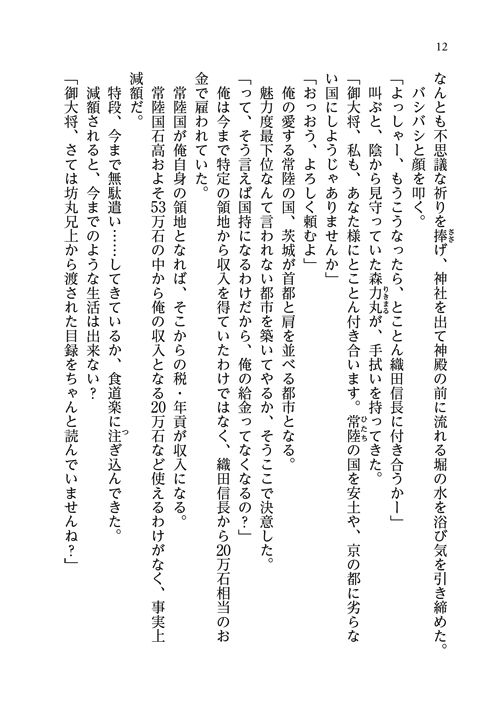 12
なんとも不思議な祈りを捧げ、神社を出て神殿の前に流れる堀の水を浴び気を引き締めた。
バシバシと顔を叩く。
「よっしゃー、もうこうなったら、とことん織田信長に付き合うかー」
叫ぶと、陰から見守っていた森力丸が、手拭いを持ってきた。
「御大将、私も、あなた様にとことん付き合います。常陸の国を安土や、京の都に劣らな
い国にしようじゃありませんか」
「おっおう、よろしく頼むよ」
俺の愛する常陸の国、茨城が首都と肩を並べる都市となる。
魅力度最下位なんて言われない都市を築いてやるか、そうここで決意した。
「って、そう言えば国持になるわけだから、俺の給金ってなくなるの？」
俺は今まで特定の領地から収入を得ていたわけではなく、織田信長から20万石相当のお
金で雇われていた。
常陸国が俺自身の領地となれば、そこからの税・年貢が収入になる。
常陸国石高およそ53万石の中から俺の収入となる20万石など使えるわけがなく、事実上
減額だ。
特段、今まで無駄遣い……してきているか、食道楽に注ぎ込んできた。
減額されると、今までのような生活は出来ない？
「御大将、さては坊丸兄上から渡された目録をちゃんと読んでいませんね？」